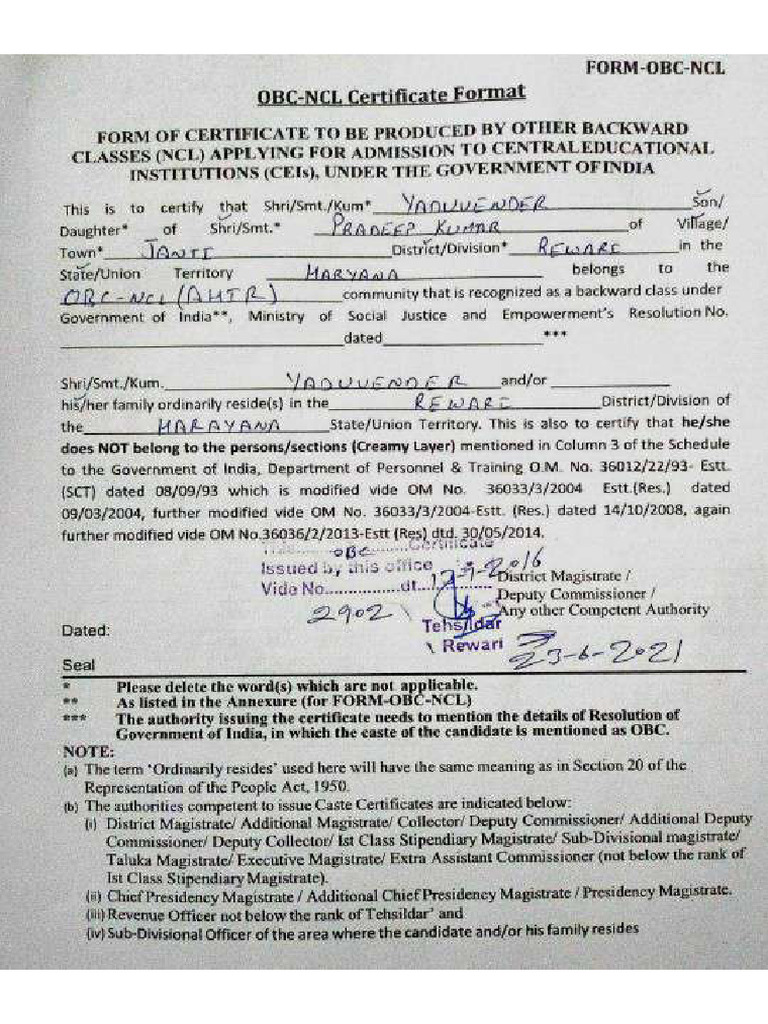 FORM-OBC-NCL
OBC-NCL Certificate Format
FORM OF CERTIFICATE TO BE PRODUCED BY OTHER BACKWARD
CLASSES (NCL) APPLYING FOR ADMISSION TO CENTRAL EDUCATIONAL
INSTITUTIONS (CEIs), UNDER THE GOVERNMENT OF INDIA
This is to certify that Shri/Smt./Kum* YADUVENDER Son/
Daughter* of Shri/Smt.* PRADEEP KUMAR of Village/
Town* JANTI District/Division* REWARI in the
State/Union Territory HARYANA belongs to the
OBC-NCL (AHIR) community that is recognized as a backward class under
Government of India**, Ministry of Social Justice and Empowerment's Resolution No.
dated ***
Shri/Smt./Kum. YADUVENDER and/or
his/her family ordinarily reside(s) in the REWARI District/Division of
the HARAYANA State/Union Territory. This is also to certify that he/she
does NOT belong to the persons/sections (Creamy Layer) mentioned in Column 3 of the Schedule
to the Government of India, Department of Personnel & Training O.M. No. 36012/22/93- Estt.
(SCT) dated 08/09/93 which is modified vide OM No. 36033/3/2004 Estt.(Res.) dated
09/03/2004, further modified vide OM No. 36033/3/2004-Estt. (Res.) dated 14/10/2008, again
further modified vide OM No.36036/2/2013-Estt (Res) dtd. 30/05/2014.
OBC Certificate
Issued by this office
Vide No. 2902 dt. -2016
District Magistrate /
Deputy Commissioner /
Any other Competent Authority
Tehsildar
Rewari
23-6-2021
Dated:
Seal
* Please delete the word(s) which are not applicable.
** As listed in the Annexure (for FORM-OBC-NCL)
*** The authority issuing the certificate needs to mention the details of Resolution of
Government of India, in which the caste of the candidate is mentioned as OBC.
NOTE:
(a) The term 'Ordinarily resides' used here will have the same meaning as in Section 20 of the
Representation of the People Act, 1950.
(b) The authorities competent to issue Caste Certificates are indicated below:
(i) District Magistrate/ Additional Magistrate/ Collector/ Deputy Commissioner/ Additional Deputy
Commissioner/ Deputy Collector/ Ist Class Stipendiary Magistrate/ Sub-Divisional magistrate/
Taluka Magistrate/ Executive Magistrate/ Extra Assistant Commissioner (not below the rank of
Ist Class Stipendiary Magistrate).
(ii) Chief Presidency Magistrate / Additional Chief Presidency Magistrate / Presidency Magistrate.
(iii) Revenue Officer not below the rank of Tehsildar' and
(iv) Sub-Divisional Officer of the area where the candidate and/or his family resides